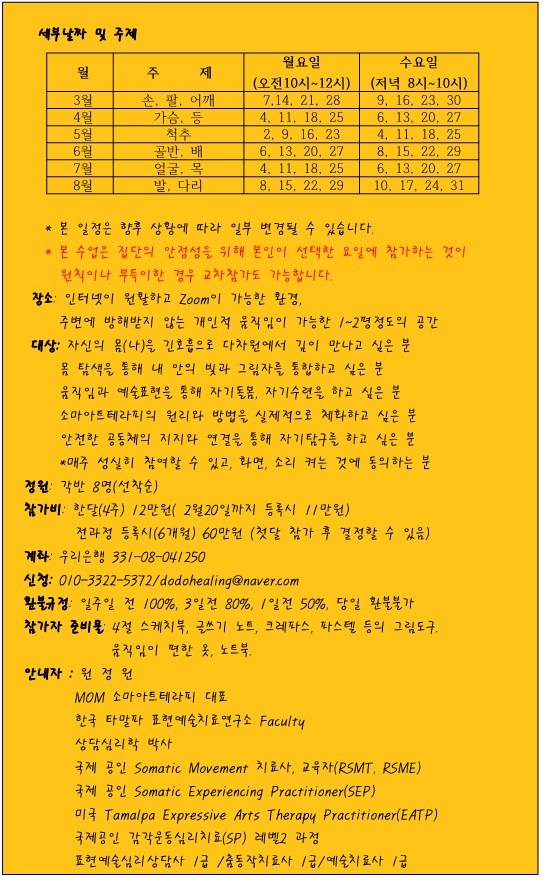 세부날짜 및 주제
월 주 제 월요일 (오전10시~12시) 수요일 (저녁 8시~10시)
3월 손, 팔, 어깨 7,14, 21, 28 9, 16, 23, 30
4월 가슴, 등 4, 11, 18, 25 6, 13, 20, 27
5월 척추 2, 9, 16, 23 4, 11, 18, 25
6월 골반, 배 6, 13, 20, 27 8, 15, 22, 29
7월 얼굴, 목 4, 11, 18, 25 6, 13, 20, 27
8월 발, 다리 8, 15, 22, 29 10, 17, 24, 31
* 본 일정은 향후 상황에 따라 일부 변경될 수 있습니다.
* 본 수업은 집단의 안정성을 위해 본인이 선택한 요일에 참가하는 것이
원칙이나 부득이한 경우 교차참가도 가능합니다.
장소: 인터넷이 원활하고 Zoom이 가능한 환경,
주변에 방해받지 않는 개인적 움직임이 가능한 1~2평정도의 공간
대상: 자신의 몸(나)을 긴호흡으로 다차원에서 깊이 만나고 싶은 분
몸 탐색을 통해 내 안의 빛과 그림자를 통합하고 싶은 분
움직임과 예술표현을 통해 자기돌봄, 자기수련을 하고 싶은 분
소마아트테라피의 원리와 방법을 실제적으로 체화하고 싶은 분
안전한 공동체의 지지와 연결을 통해 자기탐구를 하고 싶은 분
*매주 성실히 참여할 수 있고, 화면, 소리 켜는 것에 동의하는 분
정원: 각반 8명(선착순)
참가비: 한달(4주) 12만원( 2월20일까지 등록시 11만원)
전과정 등록시(6개월) 60만원 (첫달 참가 후 결정할 수 있음)
계좌: 우리은행 331-08-041250
신청: 010-3322-5372/dodohealing@naver.com
환불규정: 일주일 전 100%, 3일전 80%, 1일전 50%, 당일 환불불가
참가자 준비물: 4절 스케치북, 글쓰기 노트, 크레파스, 파스텔 등의 그림도구.
움직임이 편한 옷, 노트북.
안내자 : 원 정 원
MOM 소마아트테라피 대표
한국 타말파 표현예술치료연구소 Faculty
상담심리학 박사
국제 공인 Somatic Movement 치료사, 교육자(RSMT, RSME)
국제 공인 Somatic Experiencing Practitioner(SEP)
미국 Tamalpa Expressive Arts Therapy Practitioner(EATP)
국제공인 감각운동심리치료(SP) 레벨2 과정
표현예술심리상담사 1급 /춤동작치료사 1급/예술치료사 1급